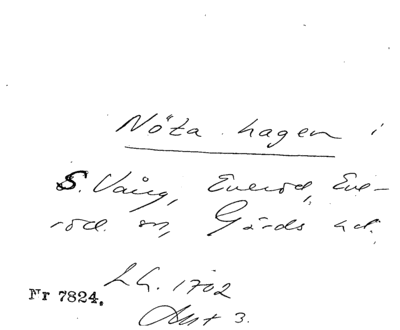 Nöta hagen i
S. Vång, Everöd, Eve-
röd sn, Gärds hd.
L.A. 1702
Nr 7824.
Akt 3.